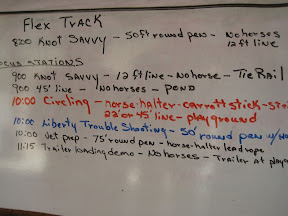 Flex Track
820 Knot Savvy - 50ft round pen - No horses
12ft line
Focus Stations
900 Knot Savvy - 12ft line - No horse - Tie Rail
900 45' line - No horses - Pond
10:00 Circling - horse-halter-carrott stick-
22' or 45' line-playground
10:00 Liberty Trouble Shooting - 50' round pen w/
10:00 Vet prep - 75' round pen - horse-halter lead rope
11:15 Trailer loading demo - No horses - Trailer at